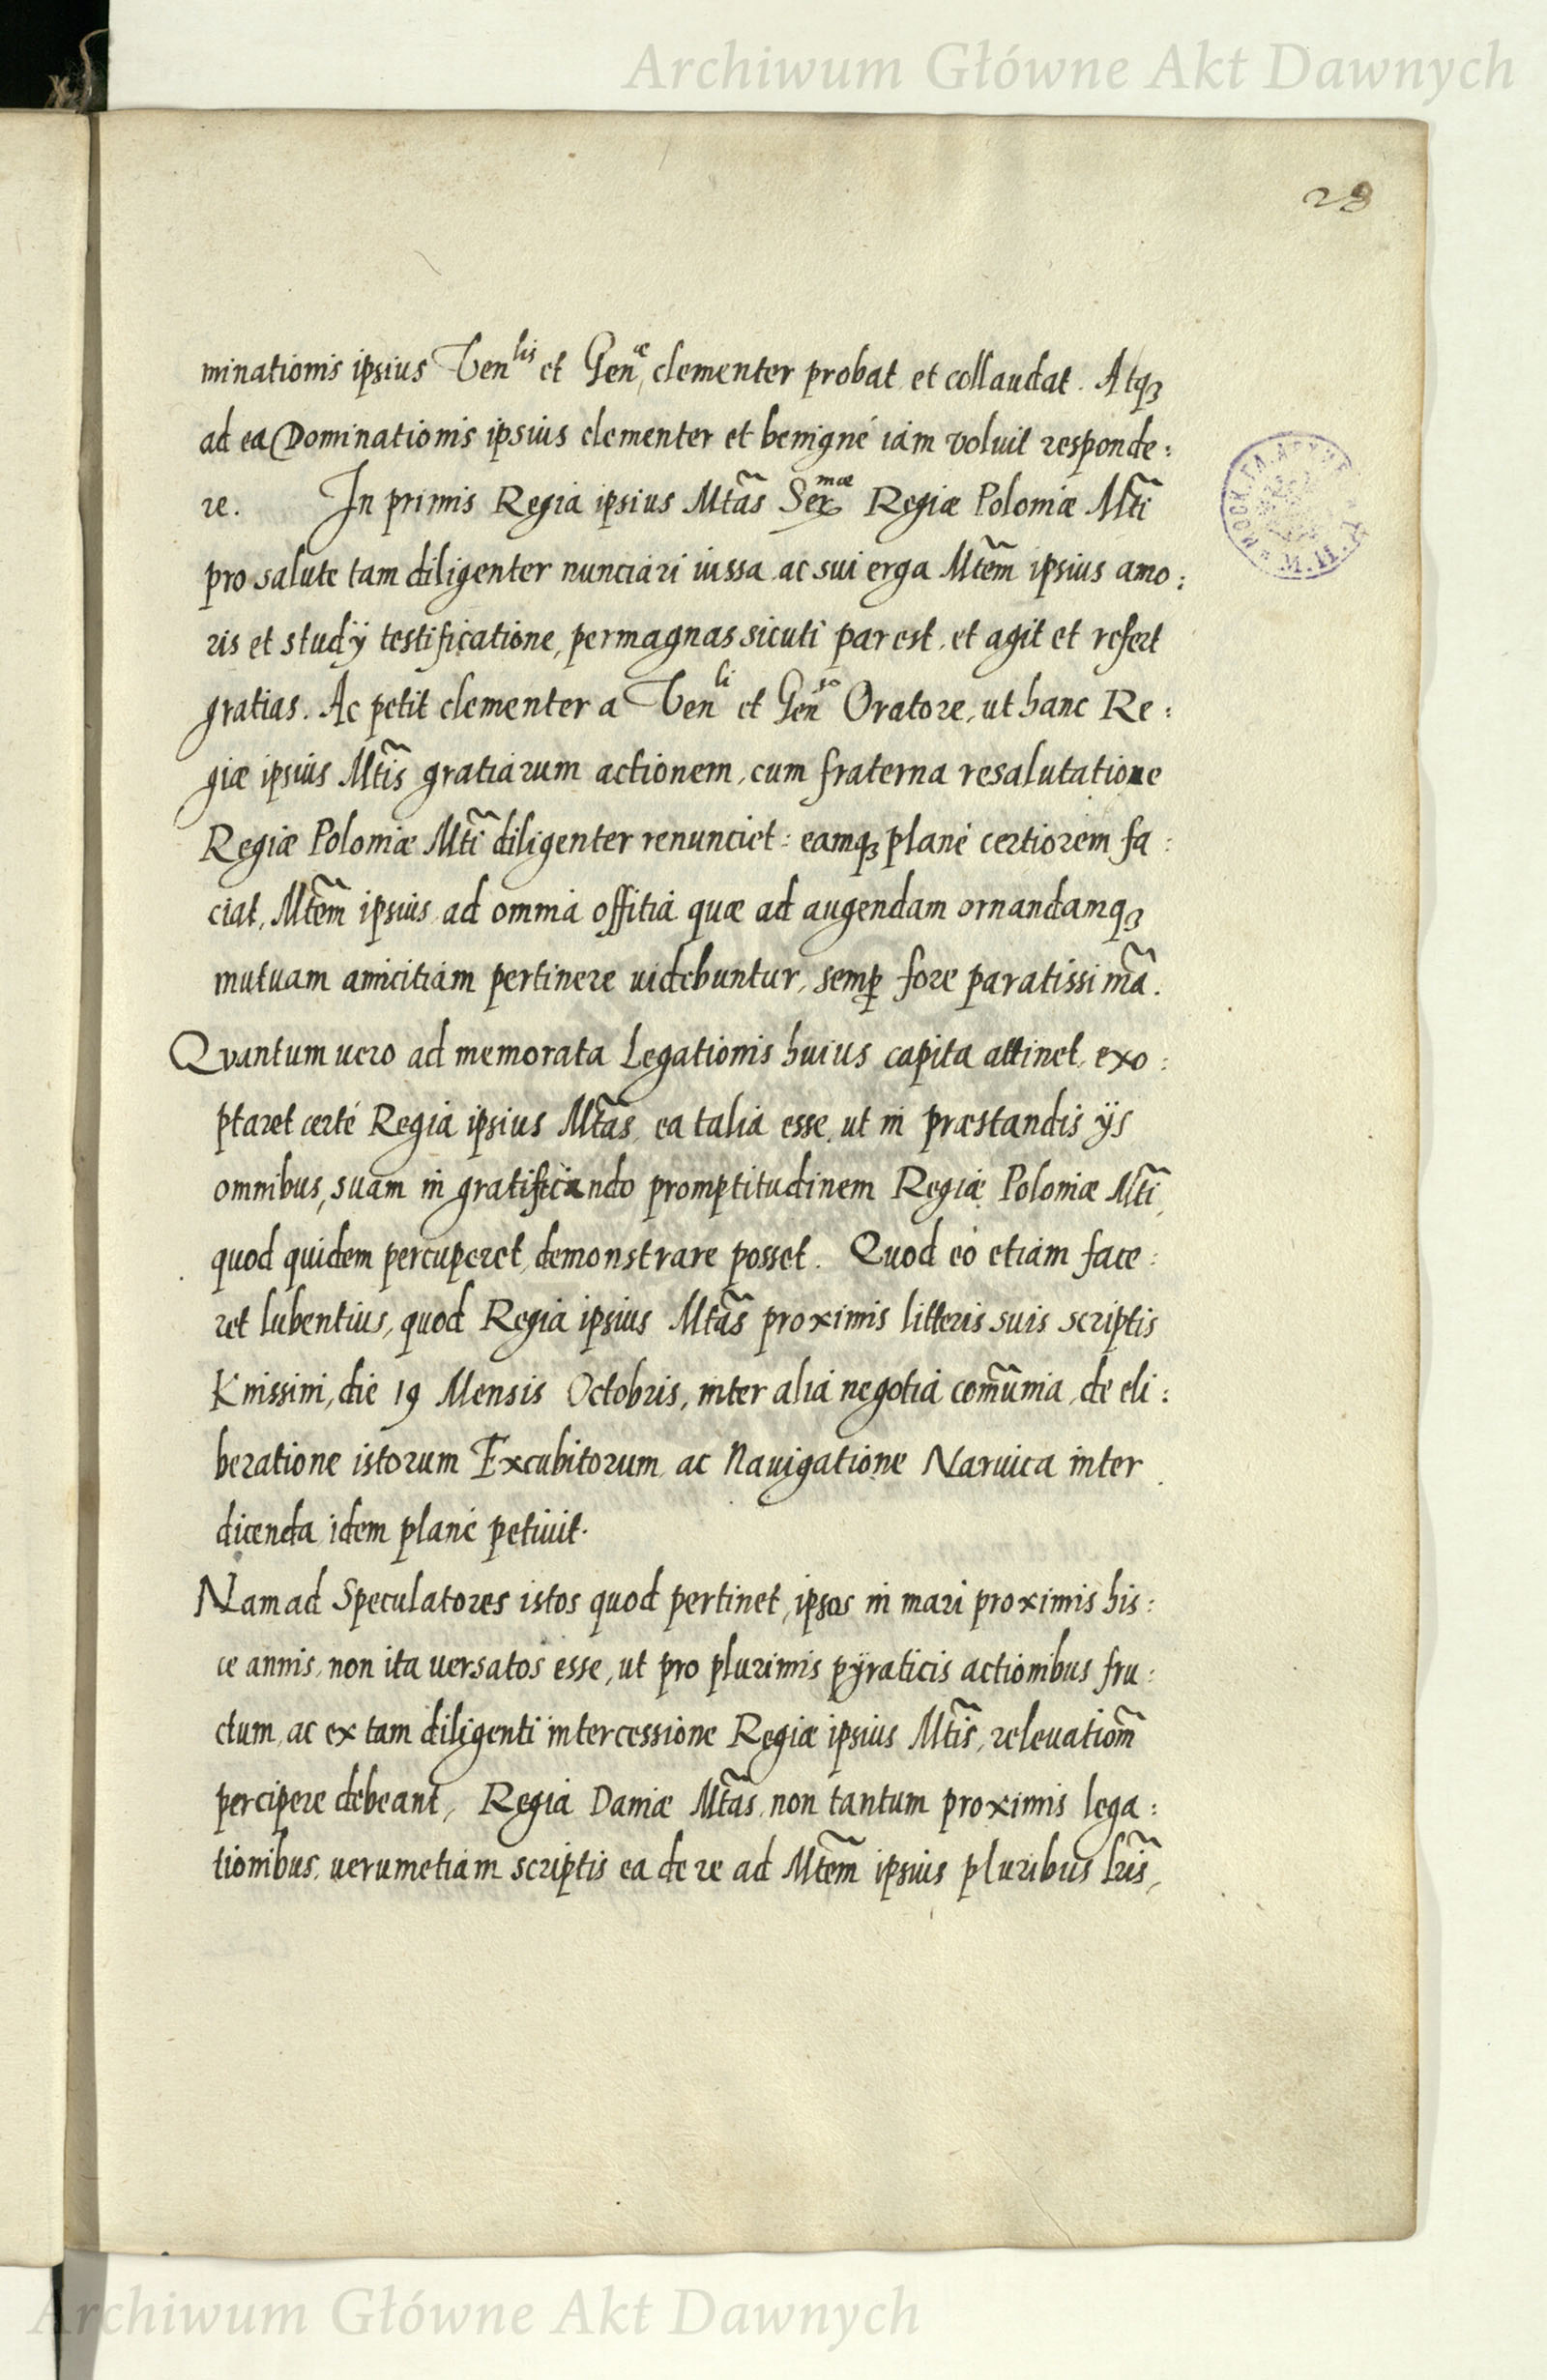 Archiwum Główne Akt Dawnych
28
minationis ipsius Venlis et Genæ, clementer probat et collaudat. Atqȝ
ad ea Dominationis ipsius clementer et benigné iam voluit responde:
re. In primis Regia ipsius Mtãs Sermæ Regiæ Poloniæ Mtĩ
pro salute tam diligenter nunciari iussa, ac sui erga Mtẽm ipsius amo:
ris et studÿ testificatione, permagnas sicuti par est, et agit et refert
gratias. Ac petit clementer a Venli et Genso Oratore, ut hanc Re:
giæ ipsius Mtĩs gratiarum actionem, cum fraterna resalutatione
Regiæ Poloniæ Mtĩ diligenter renunciet: eamqȝ plané certiorem fa:
ciat, Mtẽm ipsius ad omnia offitia quæ ad augendam ornandamqȝ
mutuam amicitiam pertinere uidebuntur, semꝑ fore paratissimã.
Quantum uero ad memorata Legationis huius capita attinet, exo:
ptaret certé Regia ipsius Mtãs, ea talia esse, ut in præstandis ÿs
omnibus, suam in gratificando promptitudinem Regiæ Poloniæ Mtĩ,
quod quidem percuperet, demonstrare posset. Quod eó etiam face:
ret lubentius, quod Regia ipsius Mtãs proximis litteris suis scriptis
Knissini, die 19 Mensis Octobris, inter alia negotia com̃unia, de eli:
beratione istorum Excubitorum, ac Nauigatione Naruica inter
dicenda, idem plané petiuit.
Nam ad Speculatores istos quod pertinet, ipsos in mari proximis his:
ce annis, non ita uersatos esse, ut pro plurimis pÿraticis actionibus fru:
ctum, ac ex tam diligenti intercessione Regiæ ipsius Mtĩs, releuatiom̃
percipere debeant, Regia Daniæ Mtãs, non tantum proximis lega:
tionibus, uerumetiam scriptis ea de re ad Mtẽm ipsius pluribus lrĩs,
Archiwum Główne Akt Dawnych